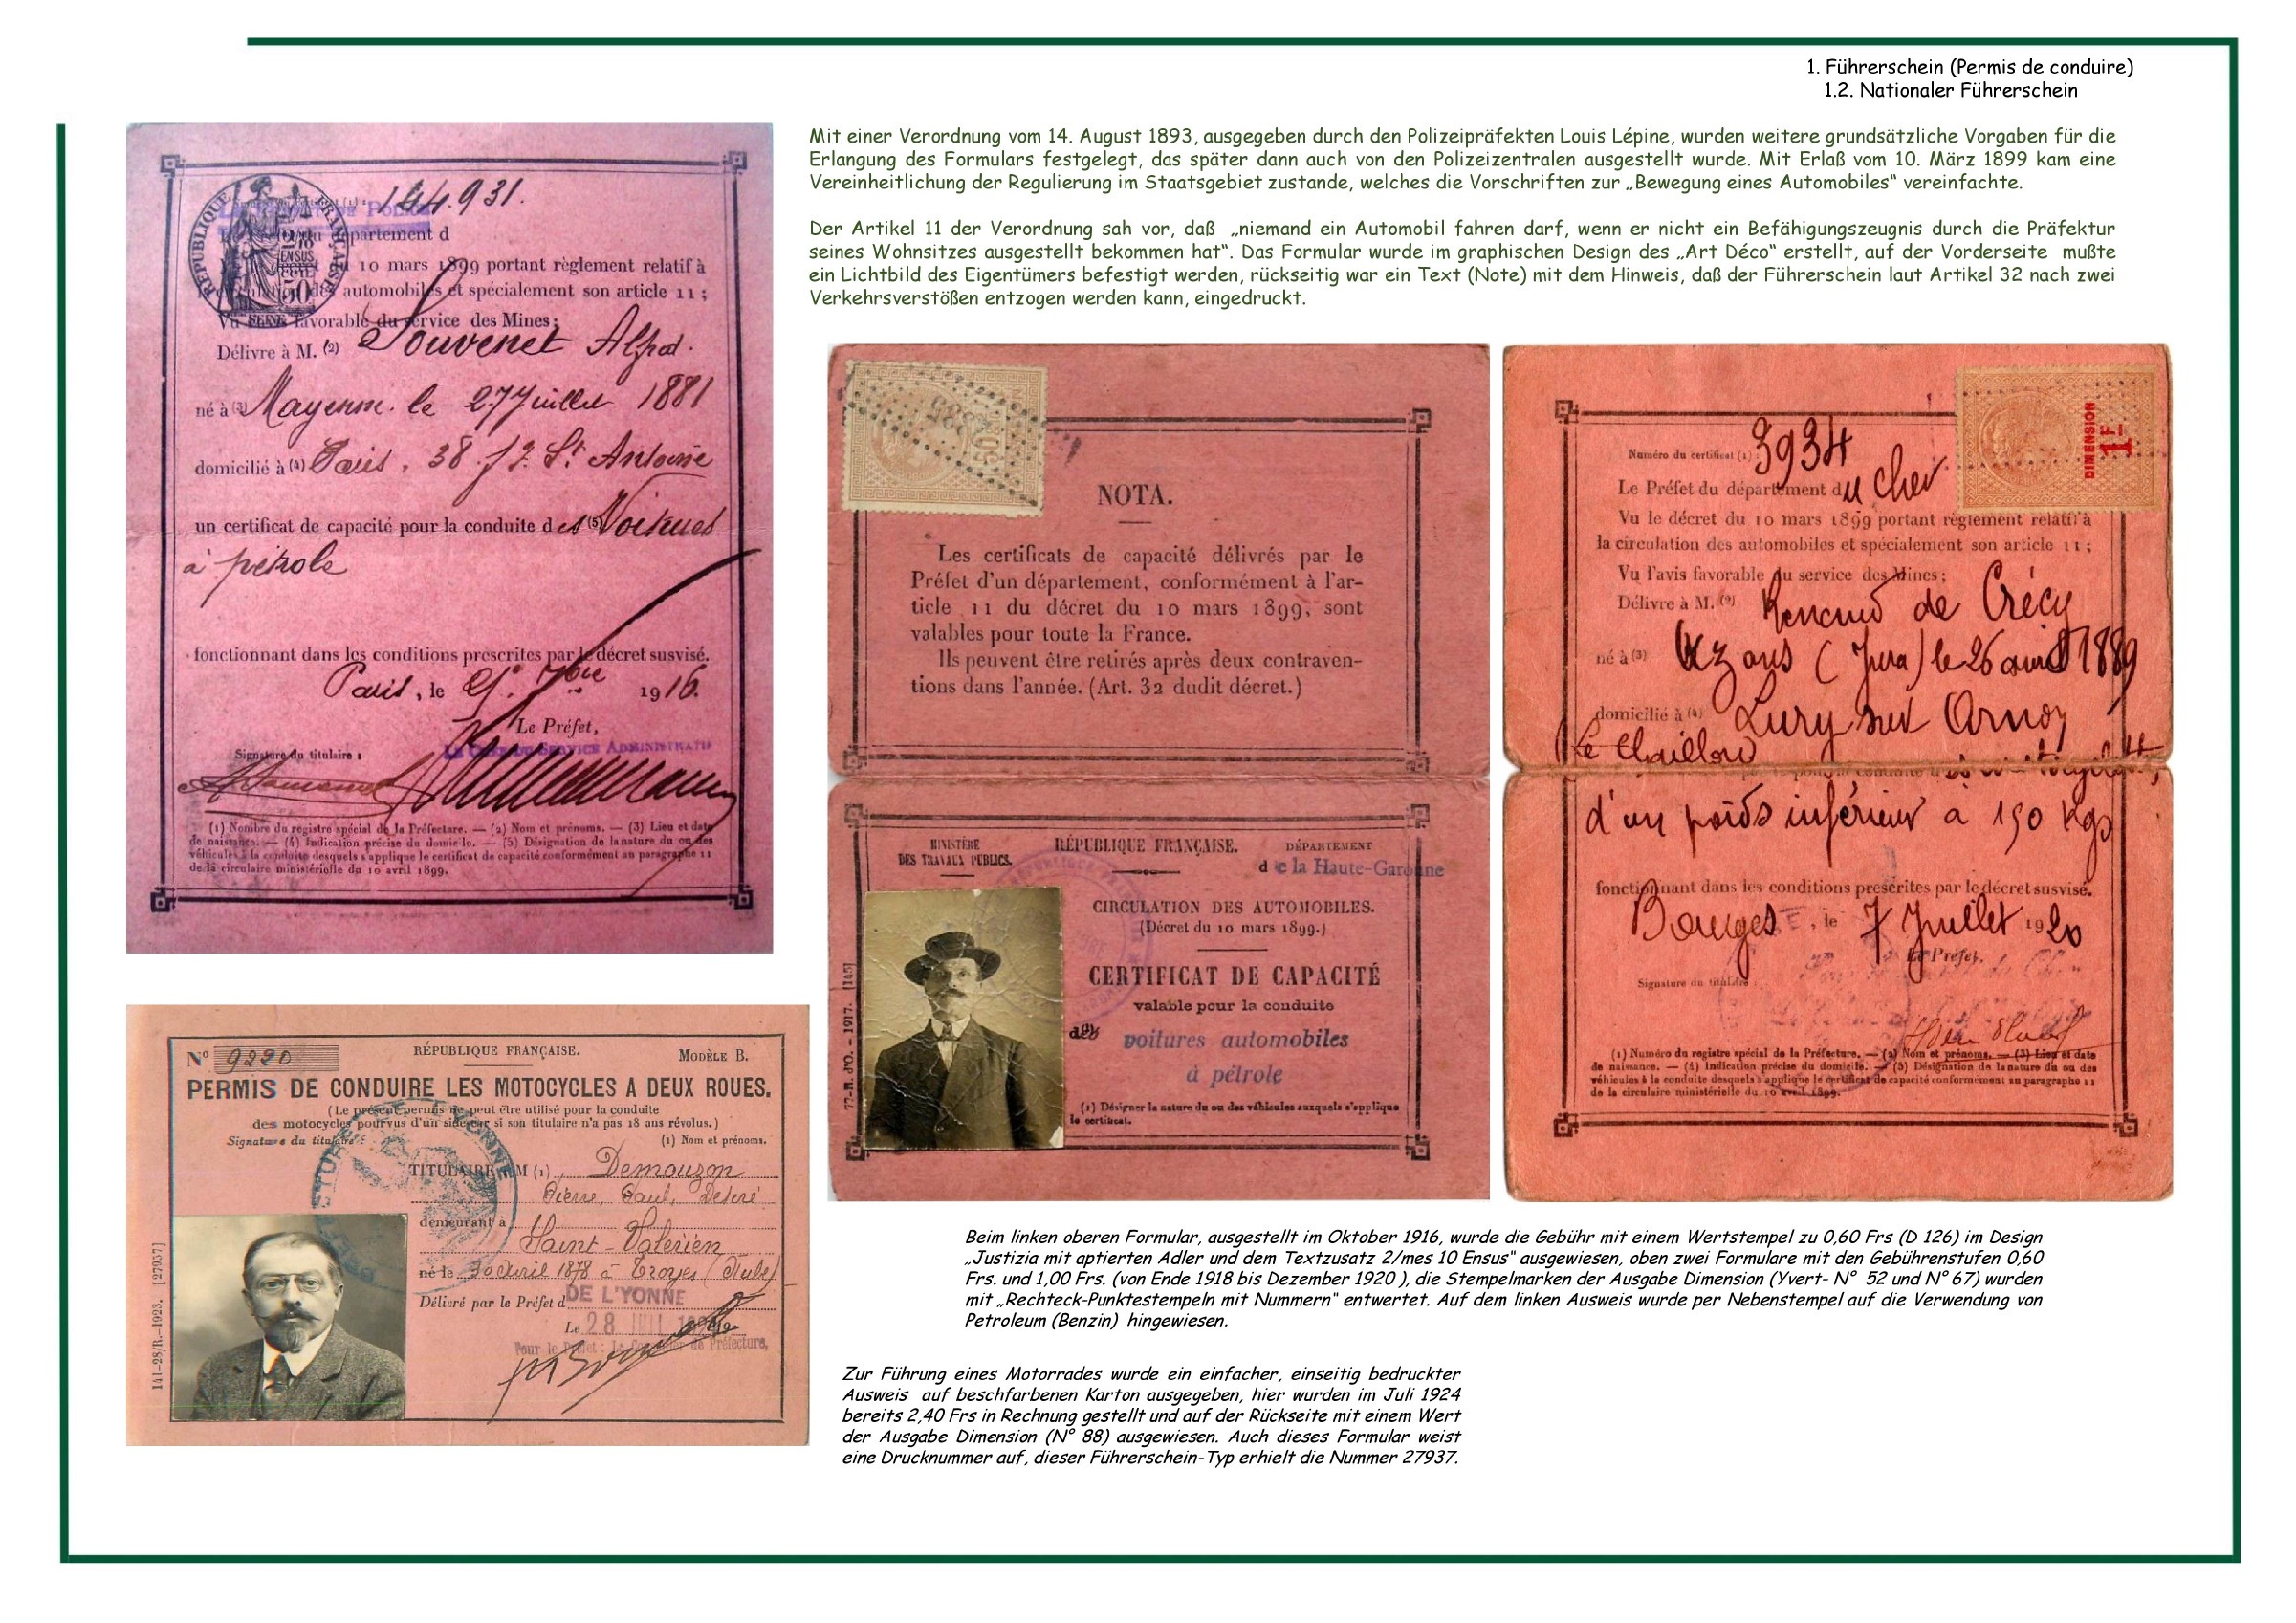 1. Führerschein (Permis de conduire)
1.2. Nationaler Führerschein
Mit einer Verordnung vom 14. August 1893, ausgegeben durch den Polizeipräfekten Louis Lépine, wurden weitere grundsätzliche Vorgaben für die
Erlangung des Formulars festgelegt, das später dann auch von den Polizeizentralen ausgestellt wurde. Mit Erlaß vom 10. März 1899 kam eine
Vereinheitlichung der Regulierung im Staatsgebiet zustande, welches die Vorschriften zur „Bewegung eines Automobiles" vereinfachte.
Der Artikel 11 der Verordnung sah vor, daß „niemand ein Automobil fahren darf, wenn er nicht ein Befähigungszeugnis durch die Präfektur
seines Wohnsitzes ausgestellt bekommen hat". Das Formular wurde im graphischen Design des „Art Déco" erstellt, auf der Vorderseite mußte
ein Lichtbild des Eigentümers befestigt werden, rückseitig war ein Text (Note) mit dem Hinweis, daß der Führerschein laut Artikel 32 nach zwei
Verkehrsverstößen entzogen werden kann, eingedruckt.
144.931.
RÉPUBLIQUE FRANÇAISE
partement d
10 mars 1899 portant règlement relatif à
automobiles et spécialement son article 11;
Vu favorable du service des Mines;
Délivre à M. (2) Souvenet Alfred.
né à (3) Mayenne. le 27 Juillet 1881
domicilié à (4) Paris, 38 St Antoine
un certificat de capacité pour la conduite des (5) Voitures
à pétrole
fonctionnant dans les conditions prescrites par le décret susvisé.
Paris, le 1916.
Le Préfet,
LE CHEF DU SERVICE ADMINISTRATIF
Signature du titulaire :
(1) Nombre du registre spécial de la Préfecture. — (2) Nom et prénoms. — (3) Lieu et date
de naissance. — (4) Indication précise du domicile. — (5) Désignation de la nature du ou des
véhicules à la conduite desquels s'applique le certificat de capacité conformément au paragraphe 11
de la circulaire ministérielle du 10 avril 1899.
NOTA.
Les certificats de capacité délivrés par le
Préfet d'un département, conformément à l'ar-
ticle 11 du décret du 10 mars 1899, sont
valables pour toute la France.
Ils peuvent être retirés après deux contraven-
tions dans l'année. (Art. 32 dudit décret.)
MINISTÈRE
DES TRAVAUX PUBLICS.
RÉPUBLIQUE FRANÇAISE.
DÉPARTEMENT
de la Haute-Garonne
CIRCULATION DES AUTOMOBILES.
(Décret du 10 mars 1899.)
CERTIFICAT DE CAPACITÉ
valable pour la conduite
des voitures automobiles
à pétrole
(1) Désigner la nature du ou des véhicules auxquels s'applique
le certificat.
77-R. d'O. – 1917. [145]
DIMENSION
1F
Numéro du certificat (1) : 3934
Le Préfet du département du Cher
Vu le décret du 10 mars 1899 portant règlement relatif à
la circulation des automobiles et spécialement son article 11;
Vu l'avis favorable du service des Mines;
Délivre à M. (2) Renaud de Crécy
né à (3) (Jura) le 26 1889
domicilié à (4) Lury sur Arnon
Le Chaillou
d'un poids inférieur à 150 Kgs
fonctionnant dans les conditions prescrites par le décret susvisé.
Bourges, le 7 Juillet 1920
Le Préfet.
Signature du titulaire
(1) Numéro du registre spécial de la Préfecture. — (2) Nom et prénoms. — (3) Lieu et date
de naissance. — (4) Indication précise du domicile. — (5) Désignation de la nature du ou des
véhicules à la conduite desquels s'applique le certificat de capacité conformément au paragraphe 11
de la circulaire ministérielle du 10 avril 1899.
N° 9220
RÉPUBLIQUE FRANÇAISE.
MODÈLE B.
PERMIS DE CONDUIRE LES MOTOCYCLES A DEUX ROUES.
(Le présent permis ne peut être utilisé pour la conduite
des motocycles pourvus d'un sidecar si son titulaire n'a pas 18 ans révolus.)
Signature du titulaire :
(1) Nom et prénoms.
TITULAIRE : M (1) Demouzon
Pierre, Paul, Désiré
demeurant à
Saint-Valérien
né le 30 Avril 1878 à Troyes (Aube)
Délivré par le Préfet d DE L'YONNE
Le 28
Pour le Préfet : Préfecture,
141-28/R.-1923. [27937]
Beim linken oberen Formular, ausgestellt im Oktober 1916, wurde die Gebühr mit einem Wertstempel zu 0,60 Frs (D 126) im Design
„Justizia mit aptierten Adler und dem Textzusatz 2/mes 10 Ensus" ausgewiesen, oben zwei Formulare mit den Gebührenstufen 0,60
Frs. und 1,00 Frs. (von Ende 1918 bis Dezember 1920 ), die Stempelmarken der Ausgabe Dimension (Yvert- N° 52 und N° 67) wurden
mit „Rechteck-Punktestempeln mit Nummern" entwertet. Auf dem linken Ausweis wurde per Nebenstempel auf die Verwendung von
Petroleum (Benzin) hingewiesen.
Zur Führung eines Motorrades wurde ein einfacher, einseitig bedruckter
Ausweis auf beschfarbenen Karton ausgegeben, hier wurden im Juli 1924
bereits 2,40 Frs in Rechnung gestellt und auf der Rückseite mit einem Wert
der Ausgabe Dimension (N° 88) ausgewiesen. Auch dieses Formular weist
eine Drucknummer auf, dieser Führerschein-Typ erhielt die Nummer 27937.